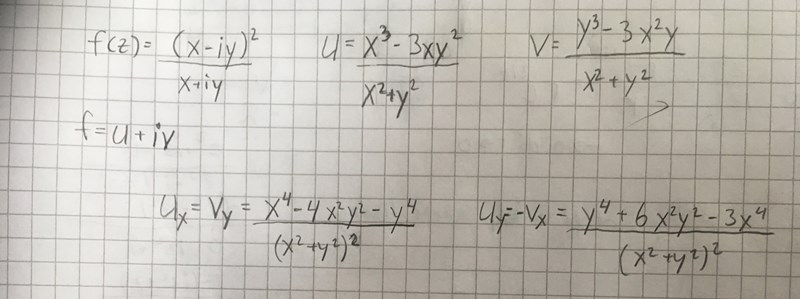 f(z) = (x-iy)²/(x+iy) U = (x³-3xy²)/(x²+y²) V = (y³-3x²y)/(x²+y²)
f = U + iy
Ux = Vy = (x⁴-4x²y²-y⁴)/(x²+y²)² Uy = -Vx = (y⁴+6x²y²-3x⁴)/(x²+y²)²